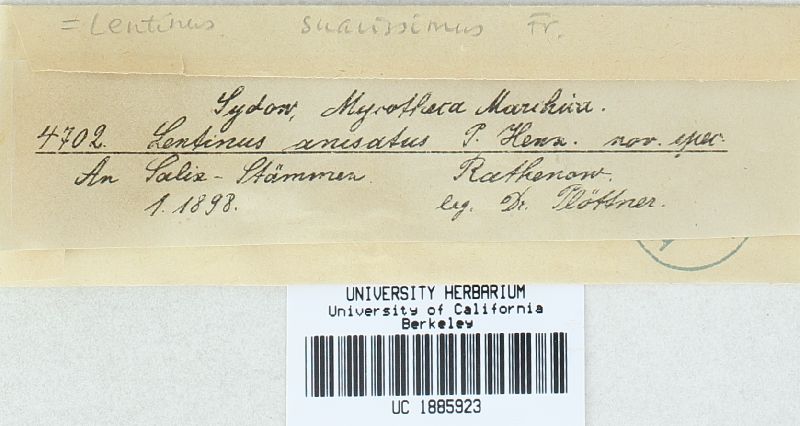 = Lentinus suavissimus Fr.
Sydow, Mycotheca Marchica.
4702. Lentinus anisatus P. Henn. nov. spec.
An Salix-Stämmen. Rathenow.
1. 1898. leg. Dr. Plöttner.
UNIVERSITY HERBARIUM
University of California
Berkeley
UC 1885923